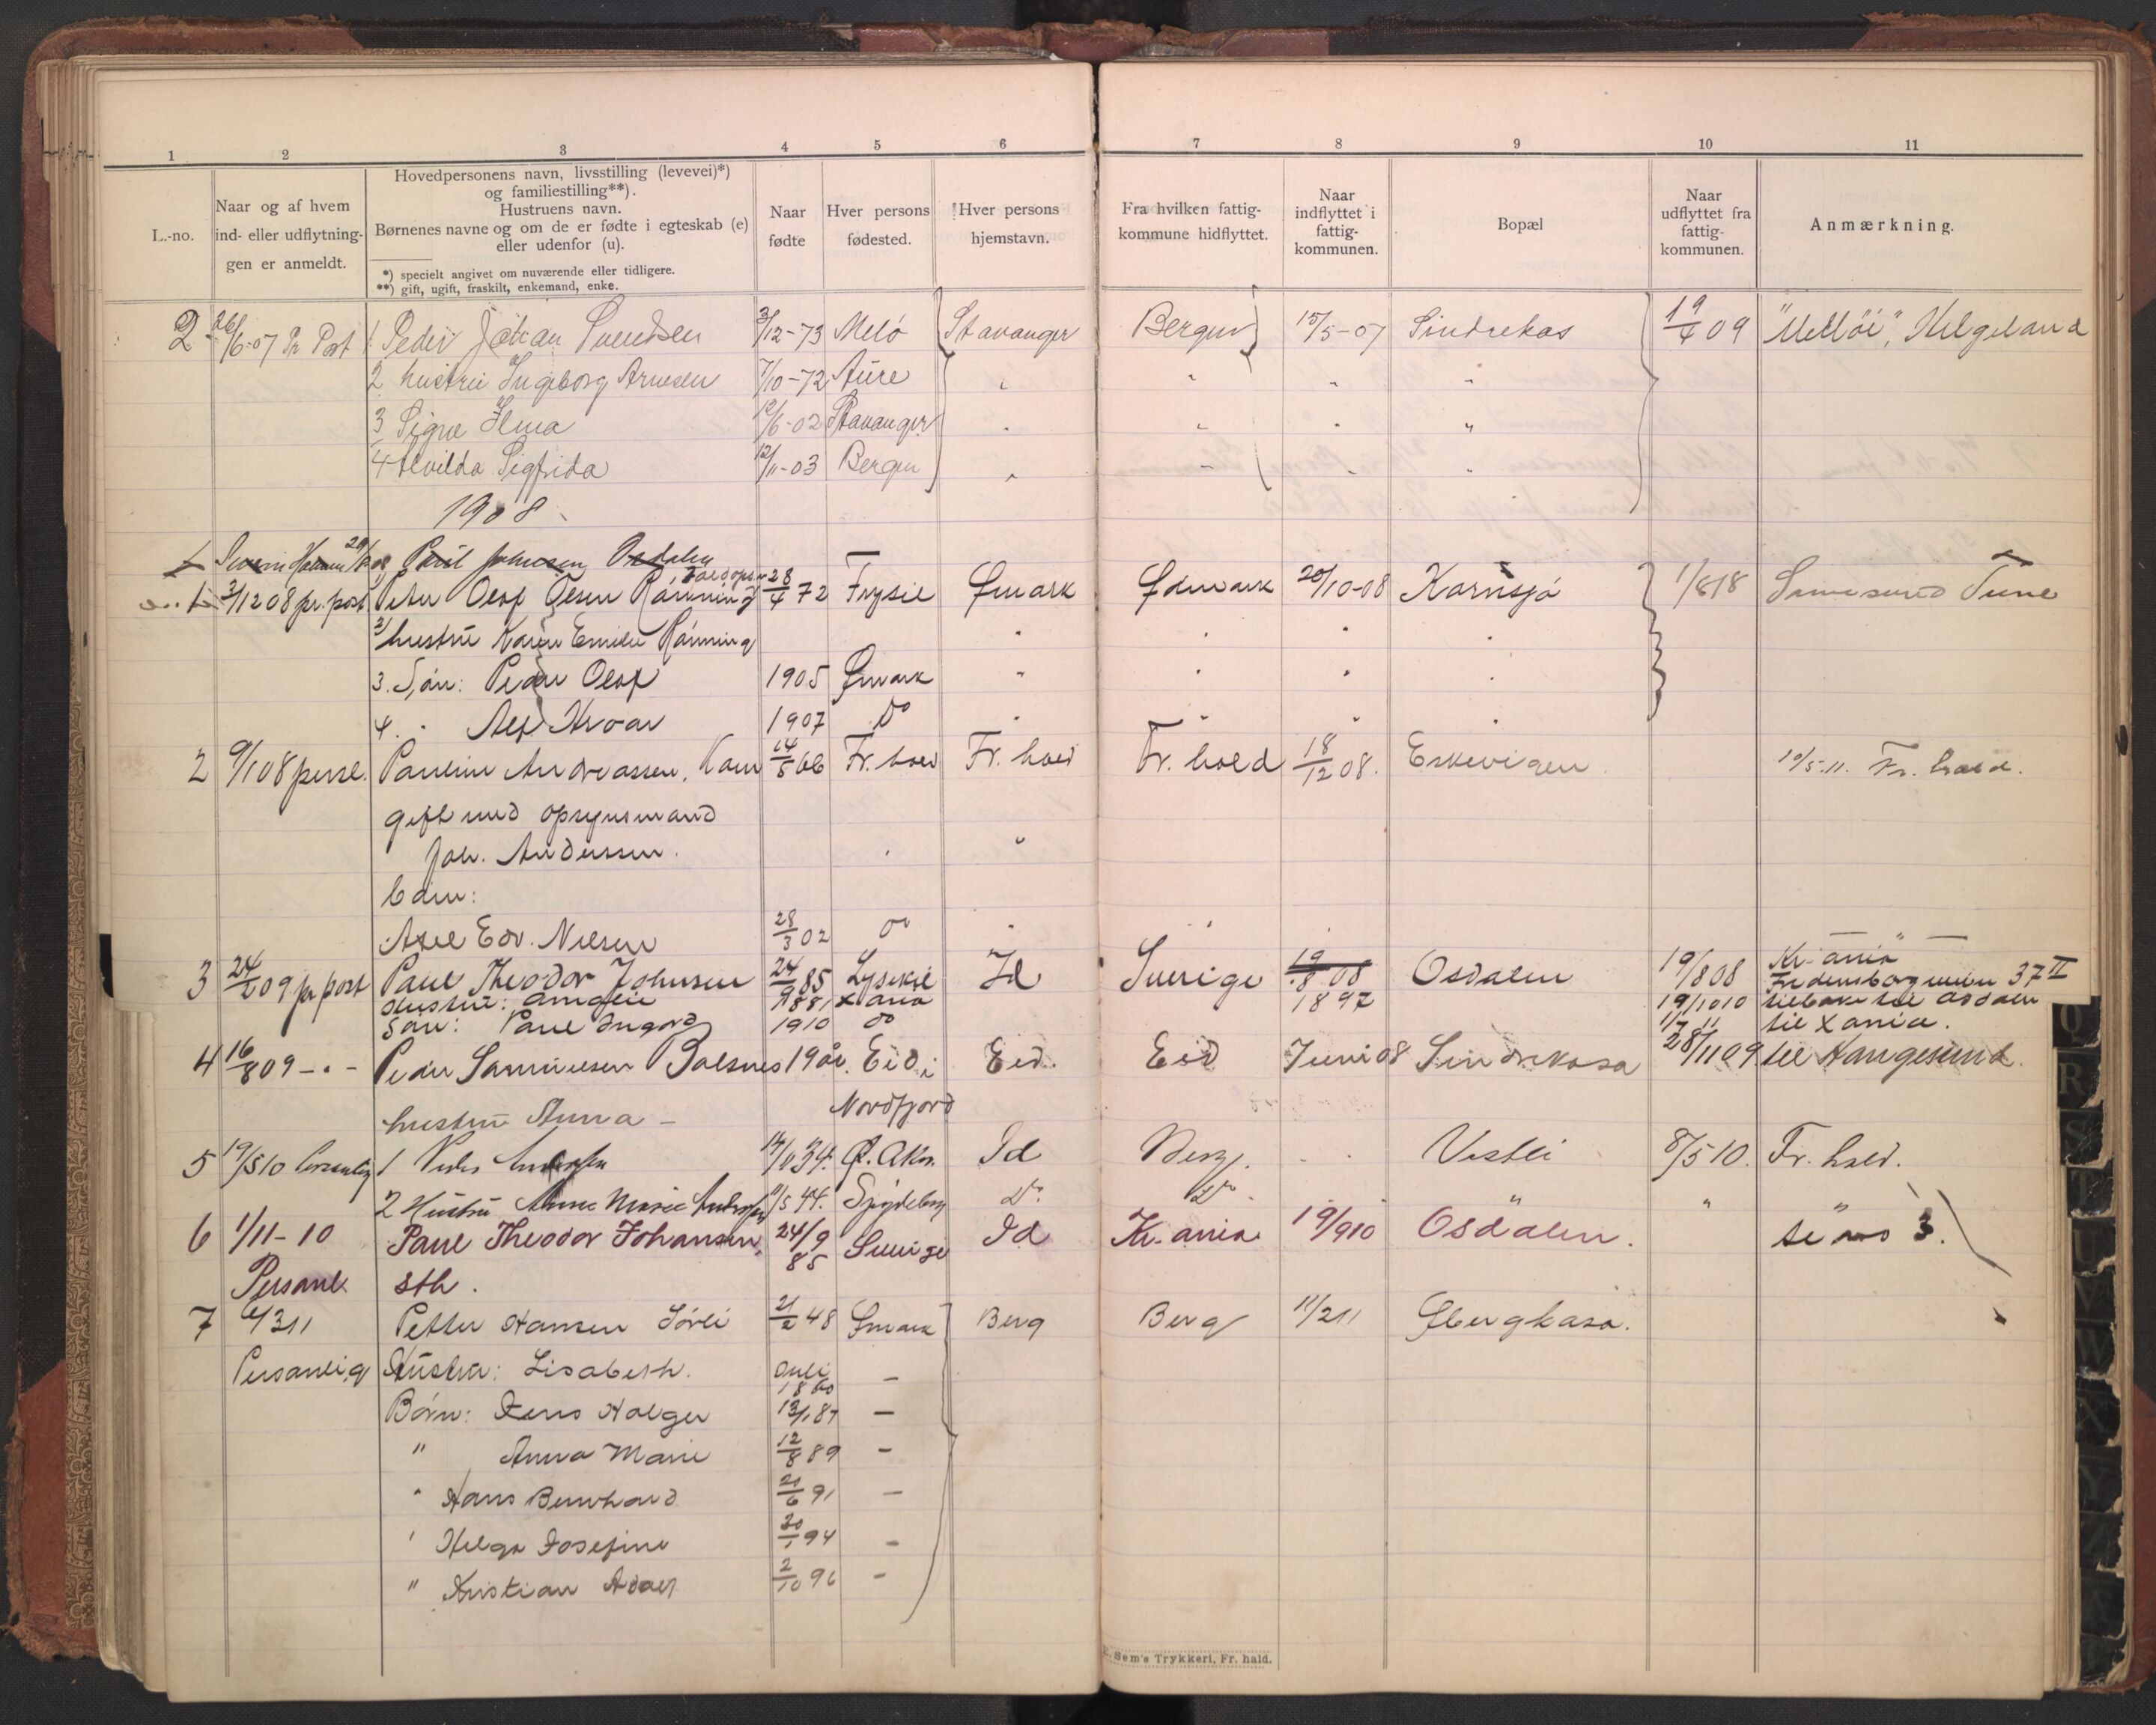 1 2 3 4 5 6 7 8 9 10 11
L.-no.
Naar og af hvem ind- eller udflytningen er anmeldt.
Hovedpersonens navn, livsstilling (levevei)*)
og familiestilling**).
Hustruens navn.
Børnenes navne og om de er fødte i egteskab (e)
eller udenfor (u).
*) specielt angivet om nuværende eller tidligere.
**) gift, ugift, fraskilt, enkemand, enke.
Naar fødte
Hver persons fødested.
Hver persons hjemstavn.
Fra hvilken fattigkommune hidflyttet.
Naar indflyttet i fattigkommunen.
Bopæl
Naar udflyttet fra fattigkommunen.
Anmærkning.
2 26/6-07 Pr Post 1 Peder Johan Svendsen 3/12-73 Melø Stavanger Bergen 15/5-07 Sindrekas 19/4 09 "Melløi", Helgeland
2 hustru Ingeborg Arnesen 7/10-72 Aure " " " "
3 Signe Elma /6-02 Stavanger " " " "
4 Alvilda Sigfrida 12/11-03 Bergen " " " "
1908
Paul Johnsen Osdalen
1 3/12 08 pr. post 1) Peter Olof Olsen Rönning 28/4 72 Trysil Ømark Ødmark 20/10-08 Kornsjö 1/8 18 Tune
2) hustru Karen Emilie Rönning " " " "
3. Sön: Peder Olof 1905 Ømark " " " "
4. " Alf Hroar 1907 Do " " " "
2 9/1 08 persl. Pauline Andreassen, Kone 14/5 66 Fr. hald Fr. hald Fr. hald 18/12 08. Eskevigen 10/5-11. Fr. hald.
gift med opsynsmand
Joh. Andersen. "
börn:
Axel Edv. Nilsen 28/3 02 Do "
3 24/2 09 pr post Paul Theodor Johnsen 24/9 85 Lysekil Id Sverige 19/8 08 Osdalen 19/8 08 Kr-ania
Fredensborgveien 37 II
Hustru: Amalie 1881 Xania 1897 19/10 10 tilbake til Osdalen
Sön: Paul Ingard 1910 do 1/7 11 til Xania.
4 16/8 09 - " - Peder Samuelsen Balsnes 19 år. Eid i Eid. Eid Juni 08 Sindrekasa 28/11 09 til Haugesund.
Nordfjord
hustru Anna -
5 19/5 10 Personlig 1 Peder Andersen 34. Ø. Aker. Id Berg. " " Vestli 8/5 10. Fr. hald.
2 Hustru Anne Marie Andersen /5 44. Spydeberg Do. Do. " "
6 1/11-10 Paul Theodor Johansen, 24/9 85 Sverige Id Kr.ania 19/9 10 Osdalen. se no 3.
Personl. sth.
7 4/3 11 Petter Hansen Sörli 21/2 48 Ømark Berg Berg 11/2 11 Øbergkasa.
Personlig Hustru: Lisabeth. Juli 1860 -
Börn: Jens Holger 13/1 87 -
" Anna Marie 12/8 89 -
" Hans Bernhard 21/6 91 -
" Helga Josefine 30/1 94 -
" Kristian Adolf 2/10 96 -
Sem's Trykkeri, Fr. hald.